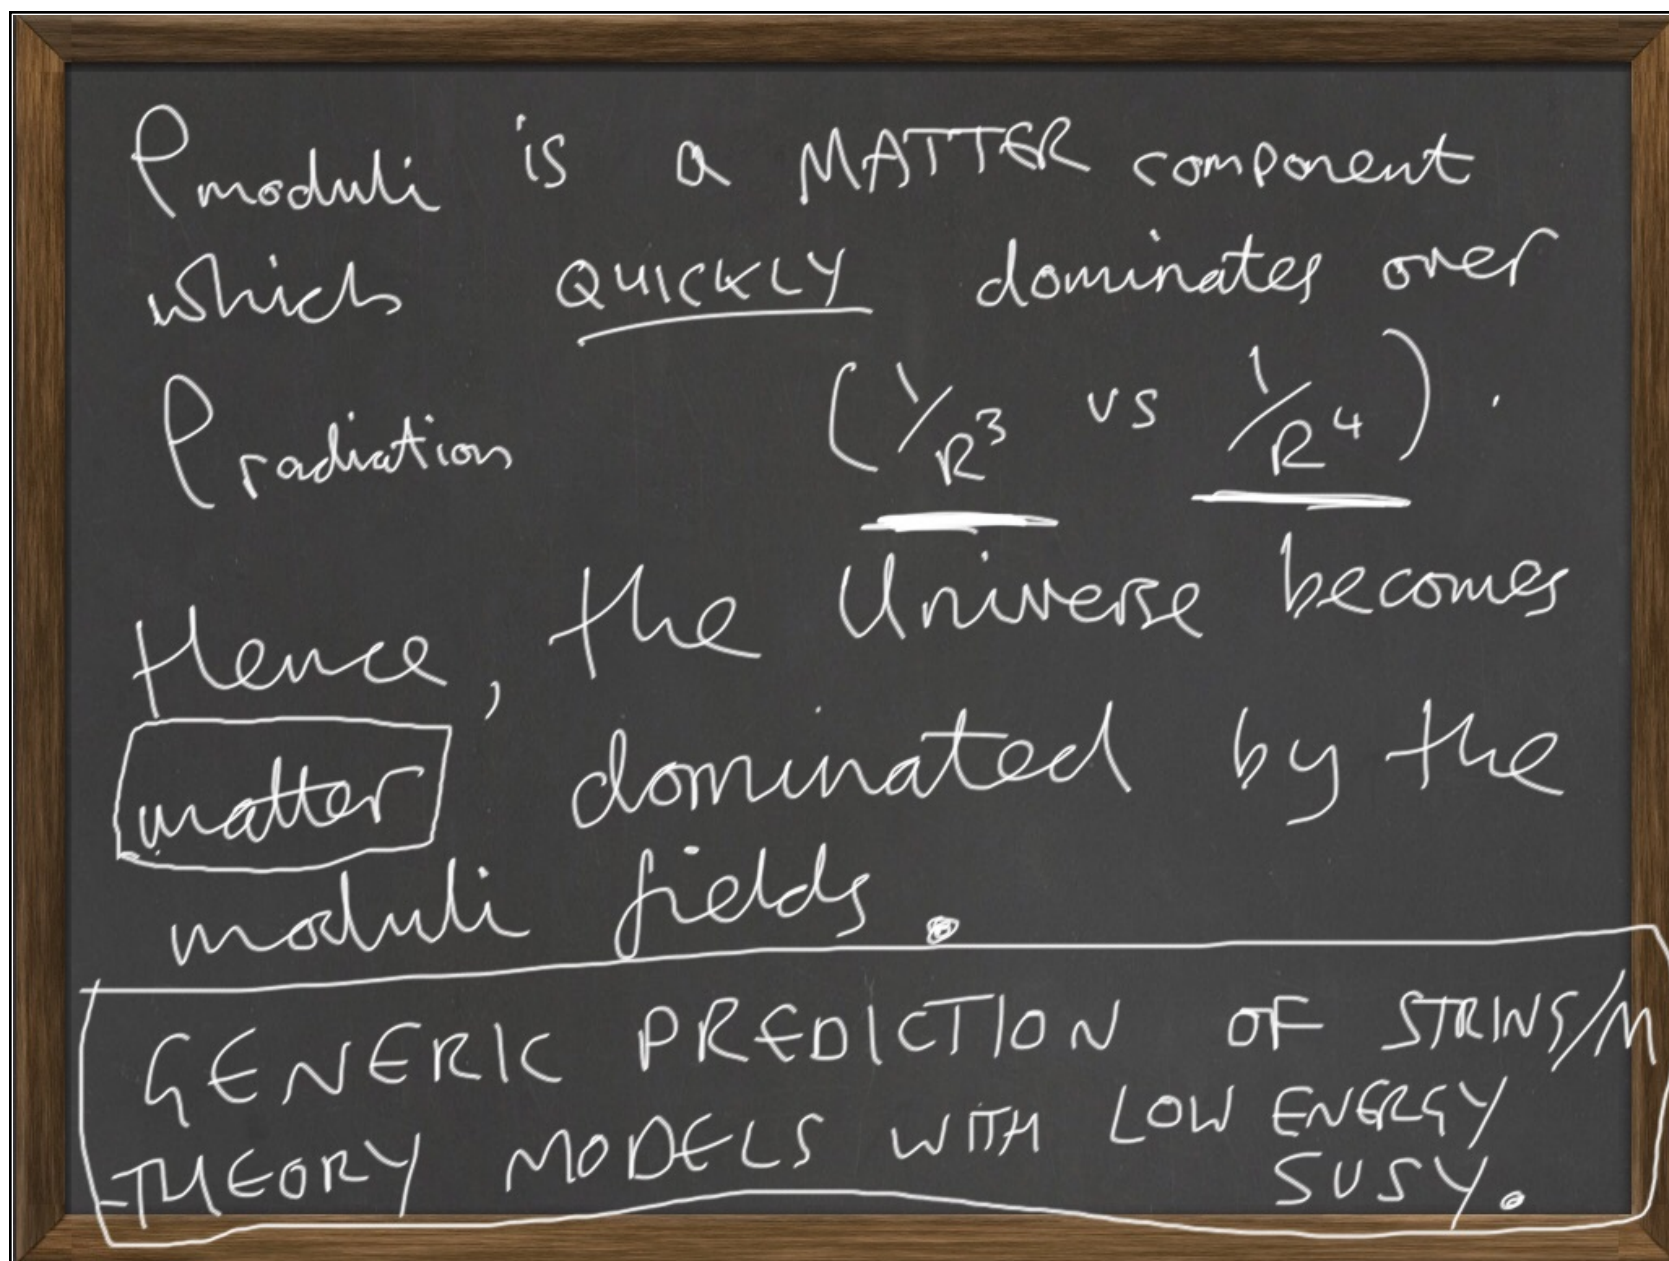 ρ moduli is a MATTER component
which QUICKLY dominates over
ρ radiation (1/R³ vs 1/R⁴).
Hence, the Universe becomes
matter dominated by the
moduli fields.
GENERIC PREDICTION OF STRING/M
THEORY MODELS WITH LOW ENERGY
SUSY.